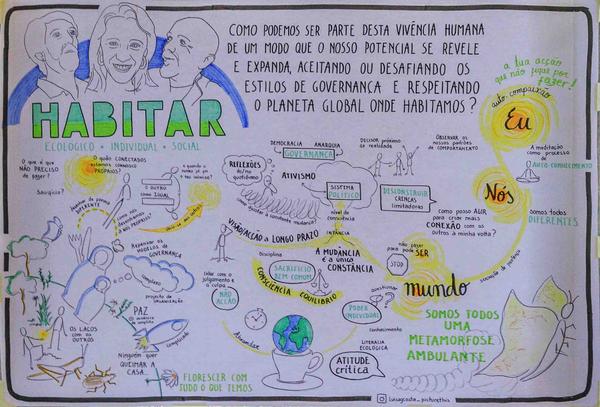 COMO PODEMOS SER PARTE DESTA VIVÊNCIA HUMANA
DE UM MODO QUE O NOSSO POTENCIAL SE REVELE
E EXPANDA, ACEITANDO OU DESAFIANDO OS
ESTILOS DE GOVERNANCA E RESPEITANDO
O PLANETA GLOBAL ONDE HABITAMOS?
HABITAR
ECOLOGICO • INDIVIDUAL • SOCIAL
a tua acção
que não pegas por
fazer!
auto-compaixão
Eu
A meditação
como processo
de
AUTO-CONHECIMENTO
Nós
somos todos
DIFERENTES
mundo
O que é que
NÃO PRECISO
de fazer?
Sacrifício?
O quão CONECTADOS
estamos connosco
PRÓPRIOS?
O OUTRO
como IGUAL
DEMOCRACIA
ANARQUIA
GOVERNANÇA
Decisor próximo
da realidade
OBSERVAR OS
nossos PADRÕES
DE COMPORTAMENTO
REFLEXÕES
do/no
quotidiano
ATIVISMO
SISTEMA
POLÍTICO
DESCONSTRUIR
CRENÇAS
limitadoras
nível de
consciência
como posso AGIR
para criar mais
CONEXÃO com os
outros à minha volta?
VISÃO/ACÇÃO A LONGO PRAZO
INFÂNCIA
A MUDANÇA
é a única
CONSTÂNCIA
não fazer
para pode SER
STOP
Disciplina
SACRIFÍCIO
BEM COMUM
CONSCIÊNCIA EQUILIBRIO
Lidar com o
julgamento e
a culpa
NÃO
ACÇÃO
questionar
PODER
INDIVIDUAL
conhecimento
LITERACIA
ECOLÓGICA
ATITUDE
crítica
Repensar os
MODELOS de
GOVERNANÇA
complexo
projecto de
humanização
PAZ
complicado
OS LAÇOS
com os
OUTROS
Ninguém quer
QUEIMAR A
CASA...
FLORESCER COM
TUDO O QUE TEMOS
SOMOS TODOS
UMA
METAMORFOSE
AMBULANTE